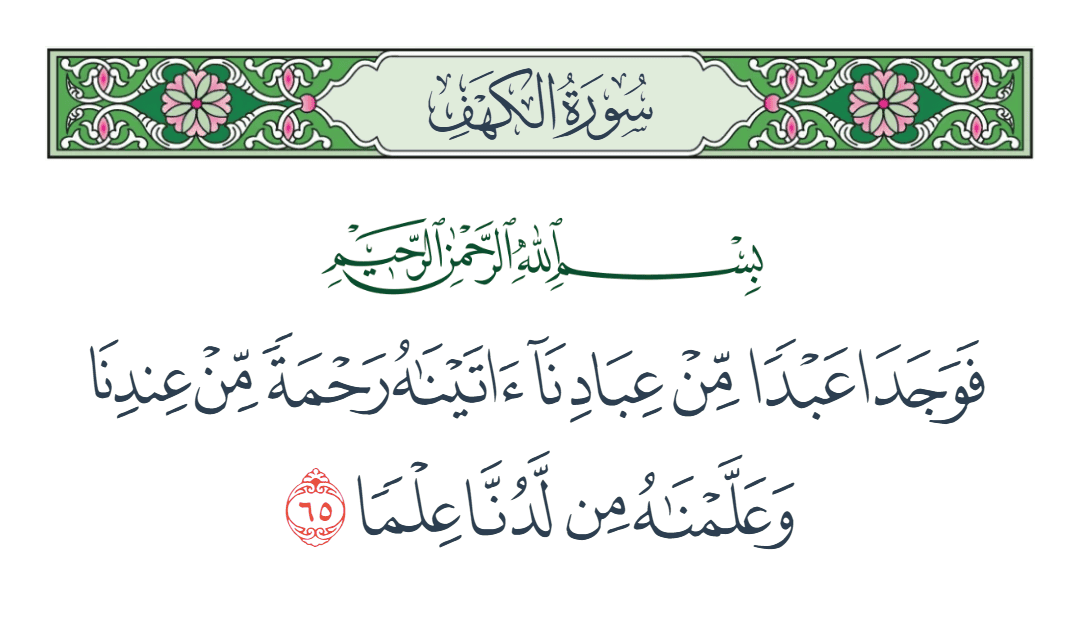 سُورَةُ الكَهْفِ
بِسْمِ ٱللَّهِ ٱلرَّحْمَٰنِ ٱلرَّحِيمِ
فَوَجَدَا عَبْدًا مِّنْ عِبَادِنَآ ءَاتَيْنَٰهُ رَحْمَةً مِّنْ عِندِنَا
وَعَلَّمْنَٰهُ مِن لَّدُنَّا عِلْمًا ٦٥